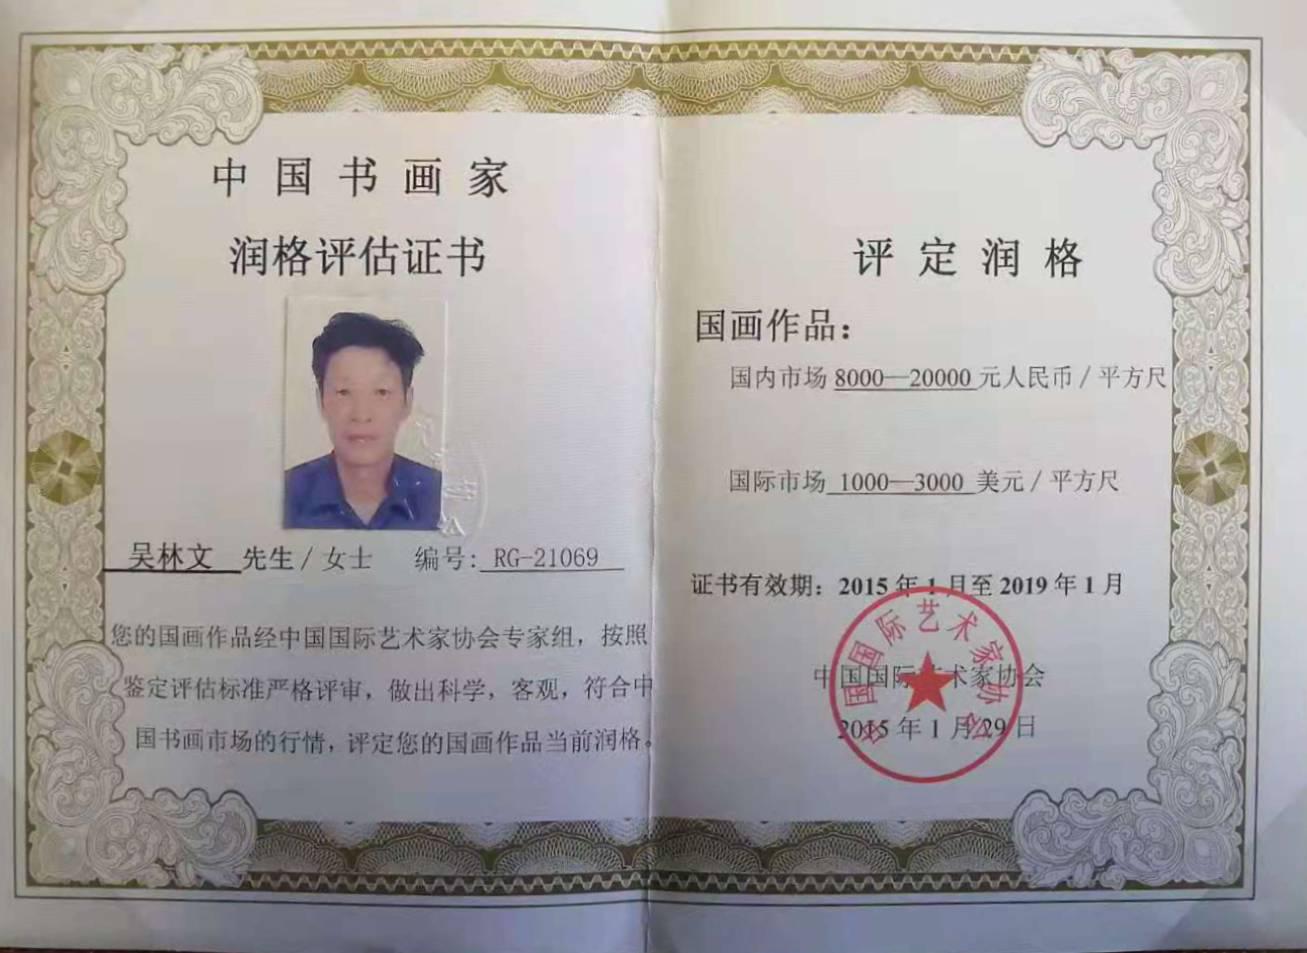 中国书画家
润格评估证书
吴林文 先生/女士 编号: RG-21069
您的国画作品经中国国际艺术家协会专家组，按照
鉴定评估标准严格评审，做出科学，客观，符合中
国书画市场的行情，评定您的国画作品当前润格。
评定润格
国画作品：
国内市场 8000—20000 元人民币/平方尺
国际市场 1000—3000 美元/平方尺
证书有效期：2015年1月至2019年1月
中国国际艺术家协会
2015年1月29日
中国国际艺术家协会